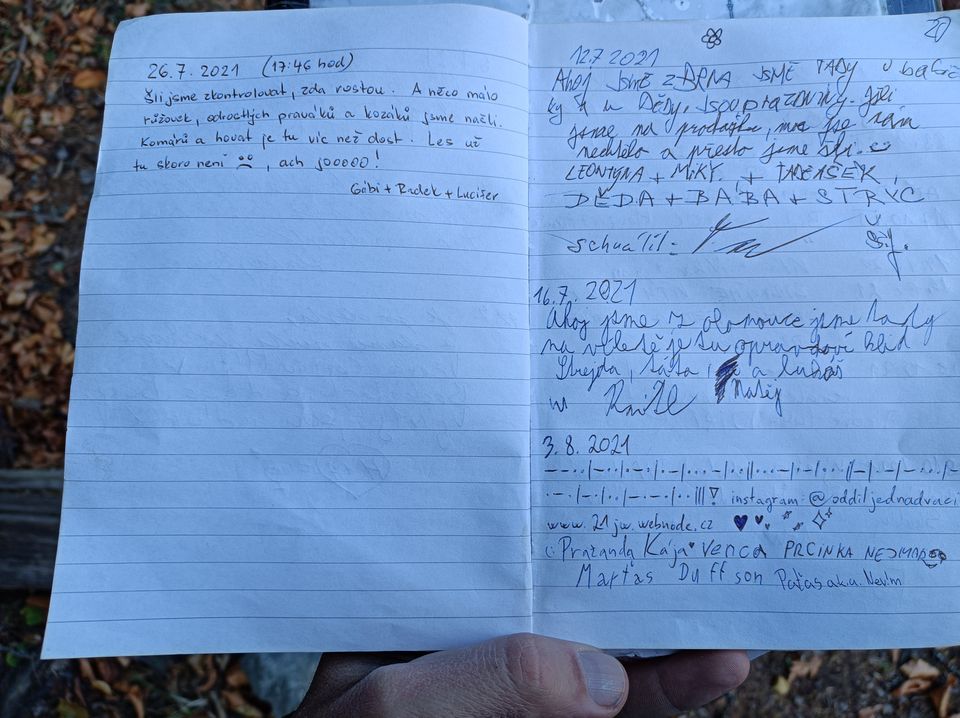 26.7. 2021 (17:46 hod)
Šli jsme zkontrolovat, zda rostou. A něco málo
růžovek, odrostlých praváků a kozáků jsme našli.
Komárů a hovat je tu víc než dost. Les už
tu skoro není ☹, ach jooooo!
Gábi + Radek + Lucišer
20
12.7 2021
Ahoj JSME Z BRNA JSME TADY U babič
ky A u Dědy. JSOU PRAZDNINY. Jeli
jsme na se nám
nechtělo a přesto jsme šli. ☺
LEONTYNA + MIKY. +
DĚDA + BÁBA + STRÝC
schválil:
16.7. 2021
Ahoj jsme z olomouce jsme tady
na výletě je tu opravdoví klad
Strejda, táta, a lukáš
Matěj
3.8. 2021
instagram: @oddiljednadvaci
www.21jw.webnode.cz
(: Pražanda Kája VENCA PRCINKA
Marťas Duffson Paťas a.k.a. Nevim